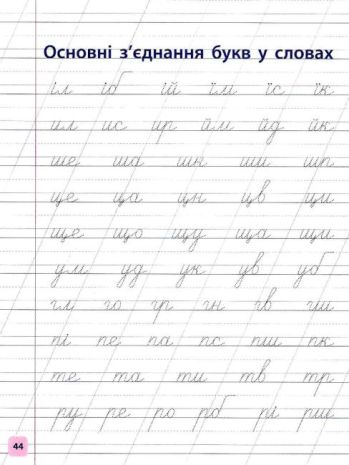 Основні з’єднання букв у словах
іл іб ій їм їс їк
ил ис ир йм йд йк
ше ша шн ши шп
це ца цн цв ци
ще що щу ща щи
ум уд ук ув уб
гл го гр гн гв гш
пі пе па пс пш пк
те та ти тв тр
ру ре ро рб рі рш
44